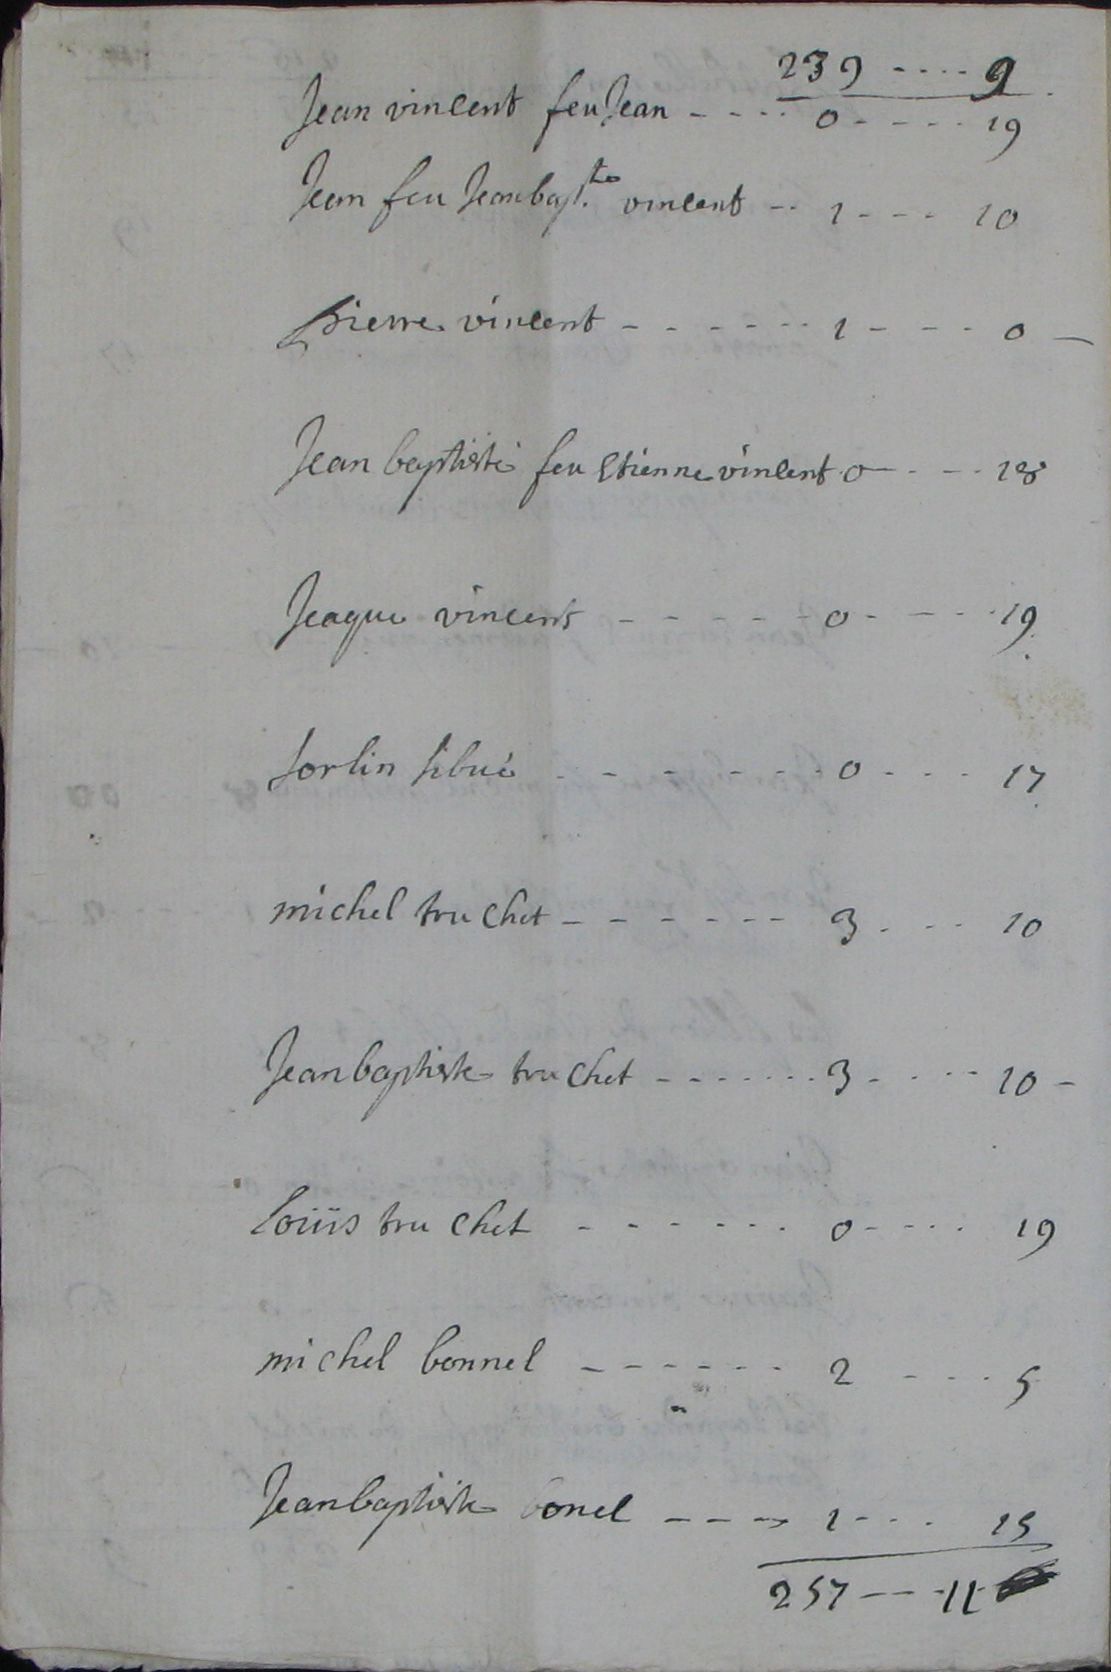 239 ---- 9
Jean vincent feu Jean - - - - 0 - - - - 19
Jean feu Jean bap.te vincent -- 1 - - - 10
pierre vincent - - - - - - - 1 - - - 0 -
Jean baptiste feu Etienne vincent 0 - - - 18
Jeaque vincent - - - - - - 0 - - - - 19
Sorlin sibué - - - - - - - - 0 - - - 17
michel truchet - - - - - - - 3 - - - 10
Jean baptiste truchet - - - - - - - 3 - - - - 10 -
loüis truchet - - - - - - - 0 - - - - 19
michel bonnel - - - - - - 2 - - - - 5
Jean baptiste bonel - - - - 1 - - - 15
257 --- 11